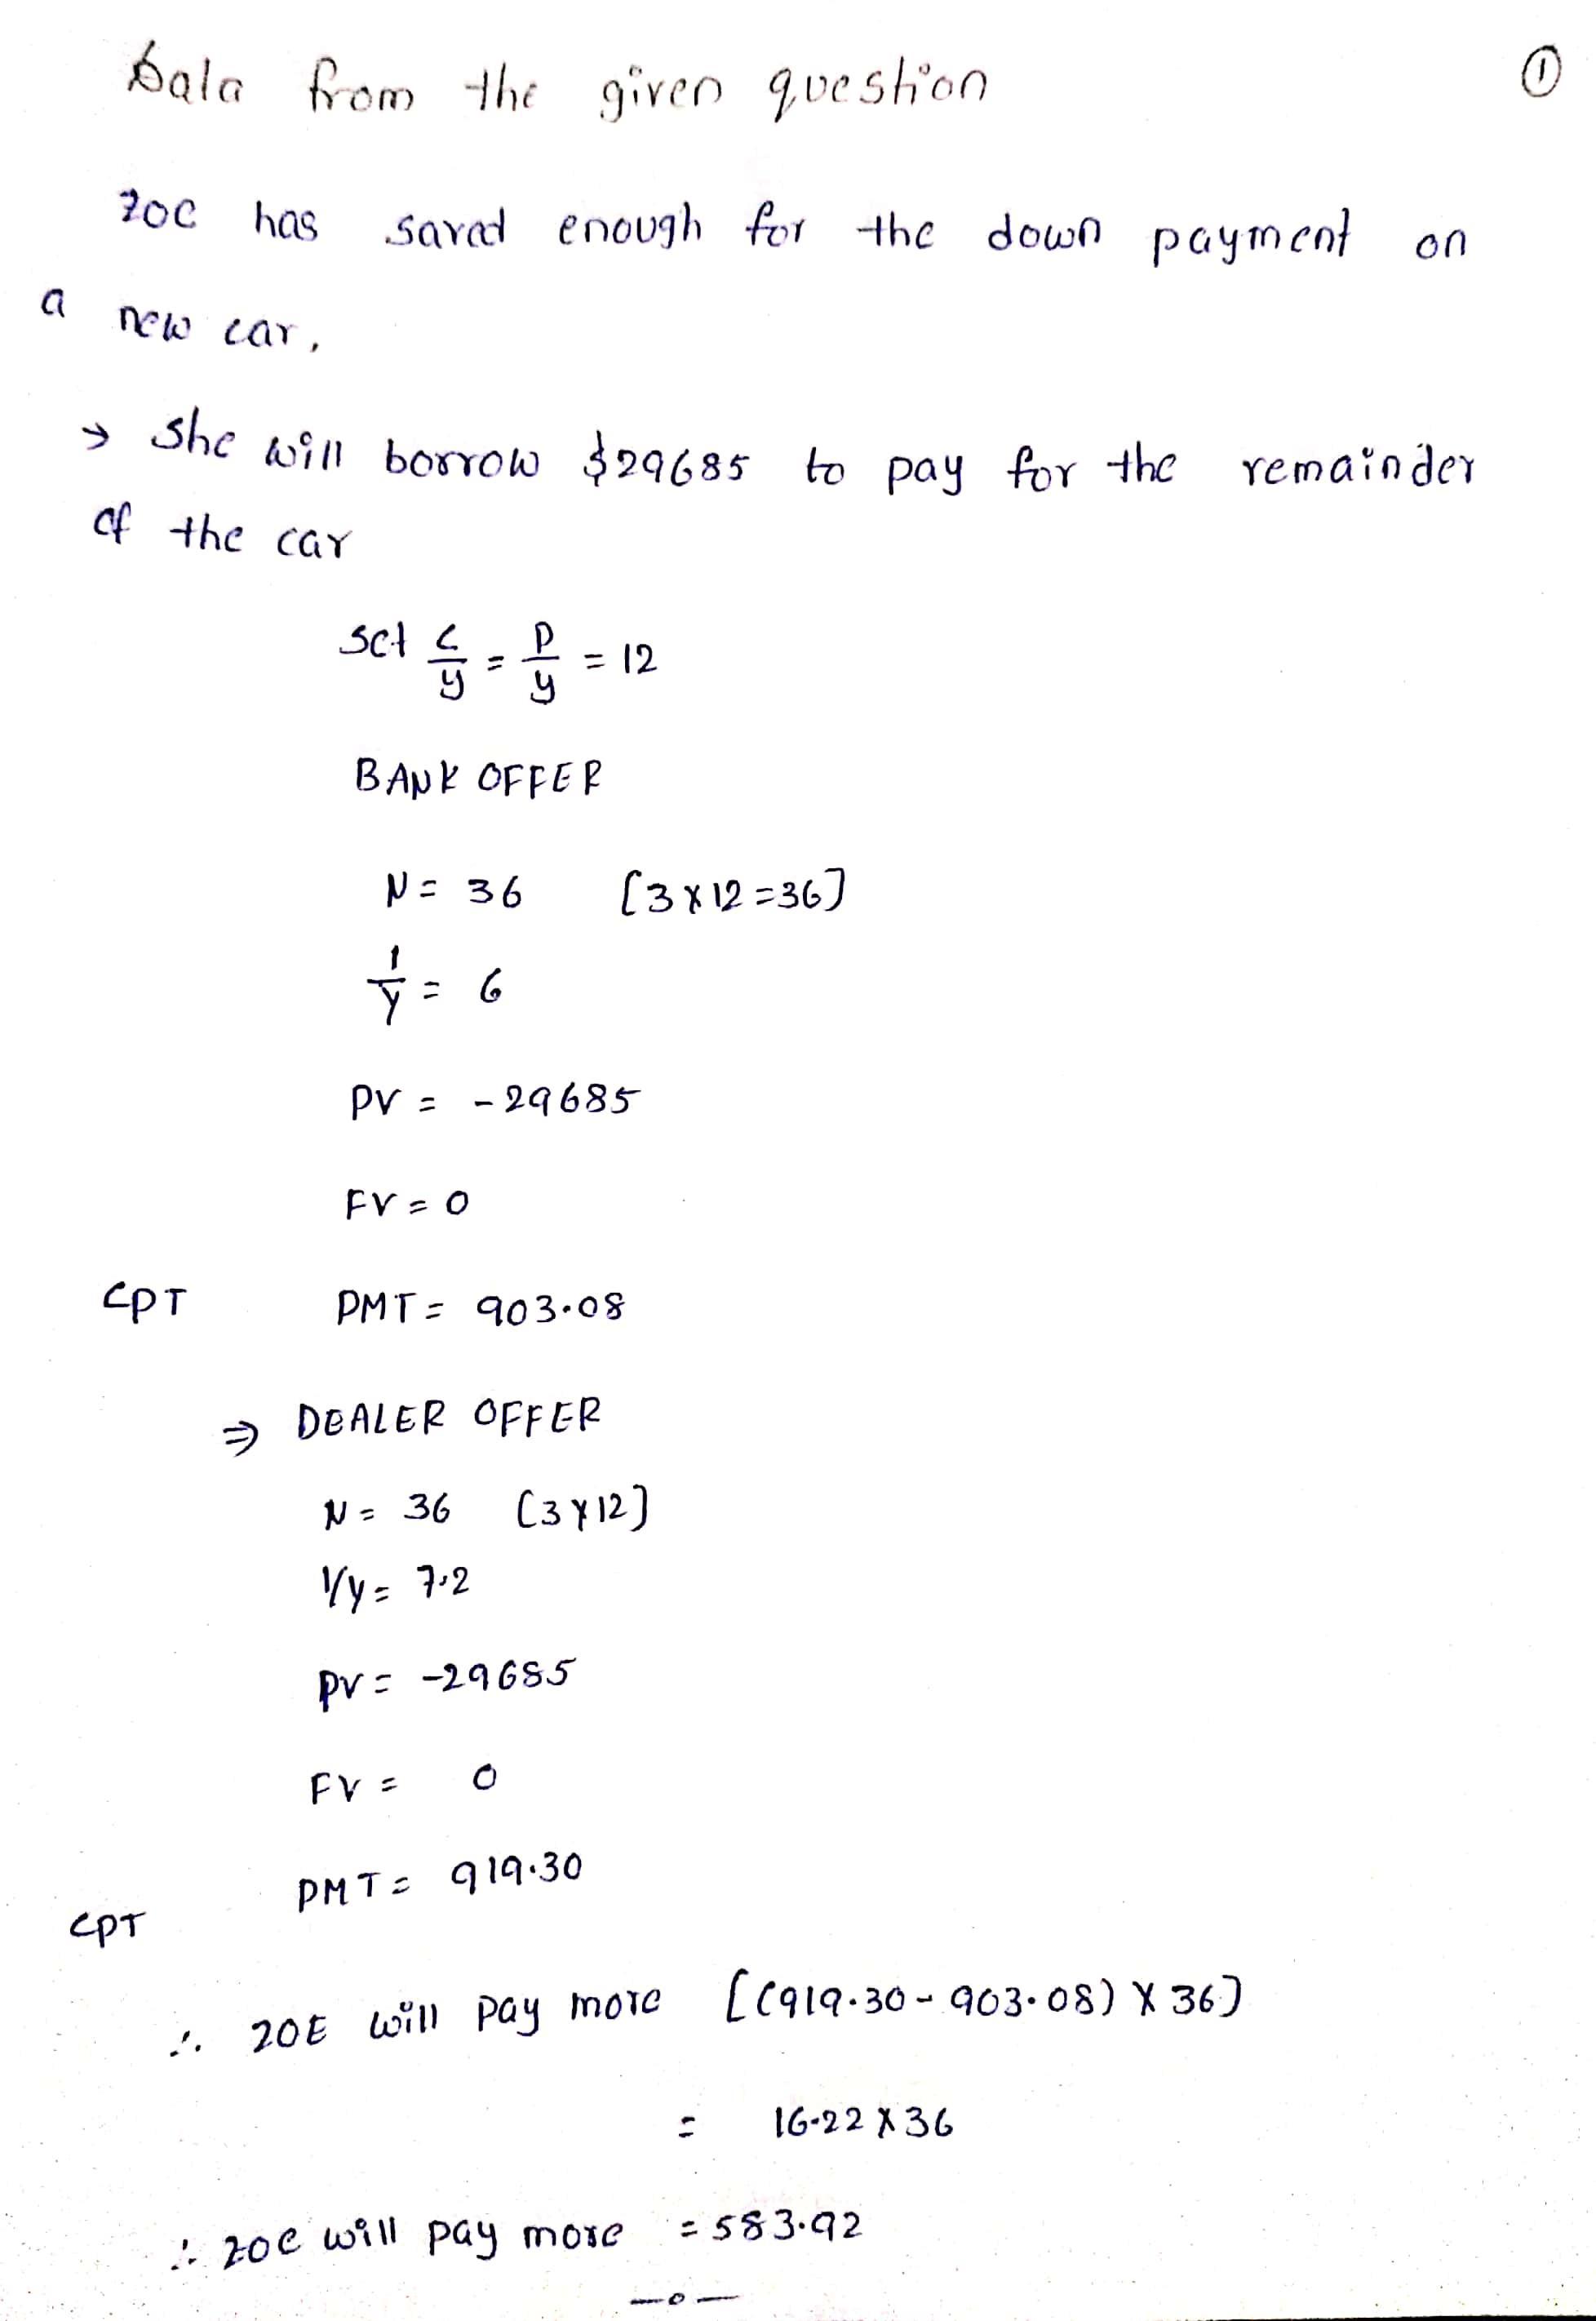 Data from the given question ①
Zoe has saved enough for the down payment on
a new car.
→ She will borrow $29685 to pay for the remainder
of the car
Set C/y = P/y = 12
BANK OFFER
N = 36 [3 × 12 = 36]
I/Y = 6
PV = -29685
FV = 0
CPT PMT = 903.08
⇒ DEALER OFFER
N = 36 [3 × 12]
I/Y = 7.2
PV = -29685
FV = 0
PMT = 919.30
CPT
∴ ZOE will pay more [(919.30 - 903.08) × 36]
= 16.22 × 36
∴ Zoe will pay more = 583.92
—o—